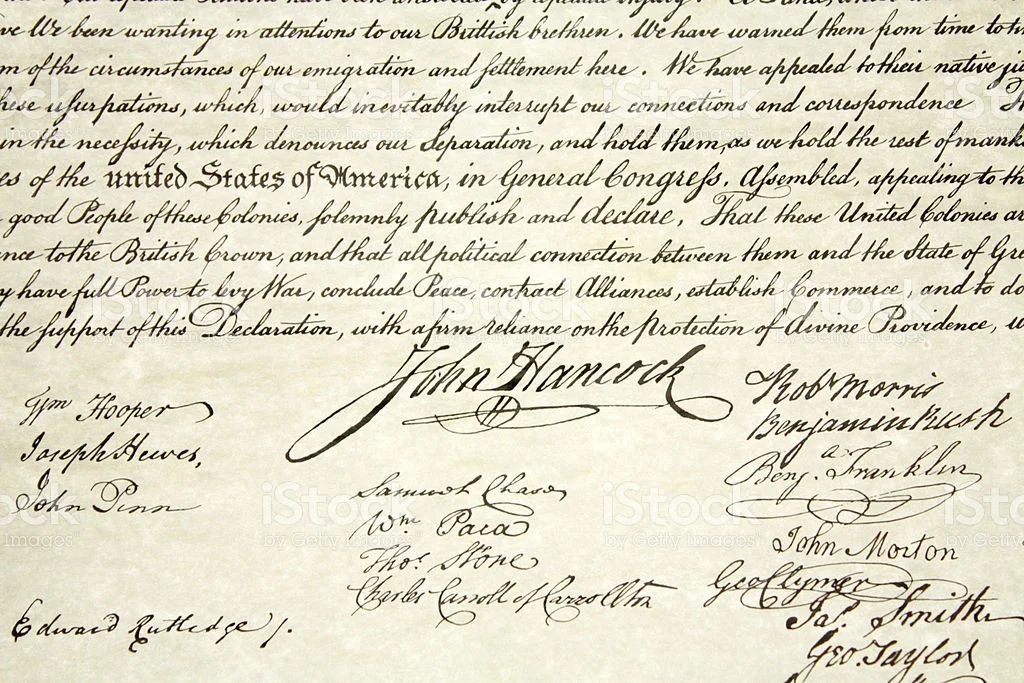 ve We been wanting in attentions to our Brittish brethren. We have warned them from time to
m of the circumstances of our emigration and settlement here. We have appealed to their native
hese usurpations, which, would inevitably interrupt our connections and correspondence
in the necessity, which denounces our Separation, and hold them, as we hold the rest of
es of the united States of America, in General Congress, Assembled, appealing to
good People of these Colonies, solemnly publish and declare, That these United Colonies
nce to the British Crown, and that all political connection between them and the State of
y have full Power to levy War, conclude Peace, contract Alliances, establish Commerce, and to do
the support of this Declaration, with a firm reliance on the Protection of divine Providence,
John Hancock
Wm Hooper
Joseph Hewes,
John Penn
Edward Rutledge /.
Samuel Chase
Wm Paca
Thos. Stone
Charles Carroll of Carrollton
Robt Morris
Benjamin Rush
Benja. Franklin
John Morton
Geo Clymer
Jas. Smith
Geo. Taylor
iStock
by Getty Images